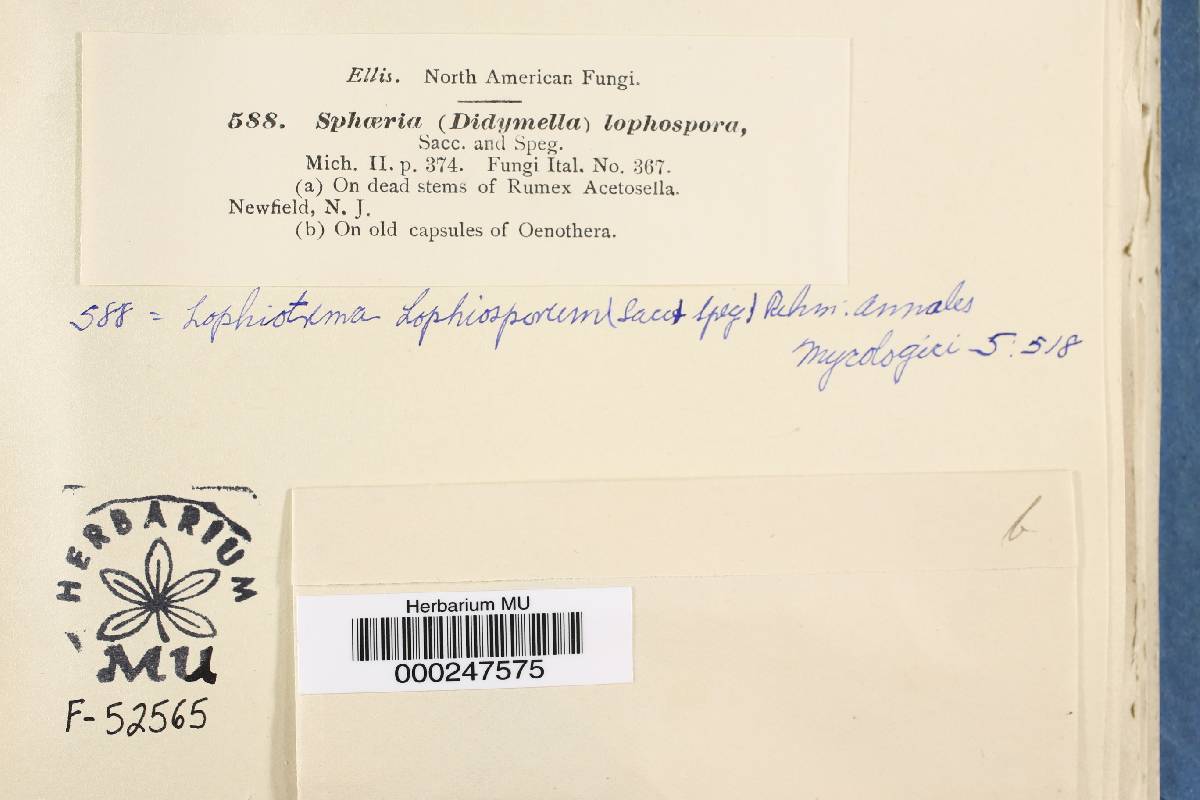 Ellis. North American Fungi.
588. Sphæria (Didymella) lophospora,
Sacc. and Speg.
Mich. II. p. 374. Fungi Ital. No. 367.
(a) On dead stems of Rumex Acetosella.
Newfield, N. J.
(b) On old capsules of Oenothera.
588 = Lophiotrema Lophiosporum (Sacc + Speg) Rehm: Annales
Mycologici 5: 518
b
HERBARIUM
MU
F-52565
Herbarium MU
000247575